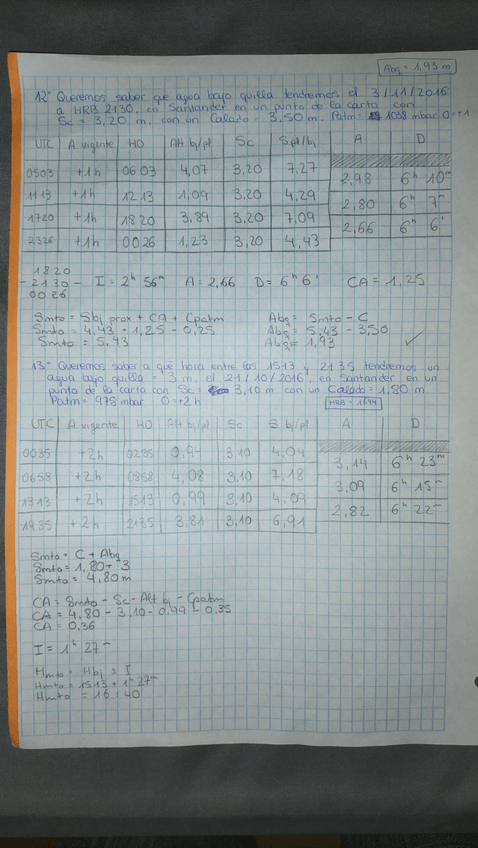 Abq = 1,93 m
12º Queremos saber que agua bajo quilla tendremos el 3/11/2016
a HRB 2130, en Santander en un punto de la carta con
Sc = 3,20 m. con un Calado = 3,50 m. Patm = 1038 mbar 0=+1
UTC A urgente HO Alt bj/pl Sc S pl/bj A D
0503 +1h 0603 4,07 3,20 7,27
2,98 6h 10m
1113 +1h 1213 1,09 3,20 4,29
2,80 6h 7m
1720 +1h 1820 3,89 3,20 7,09
2,66 6h 6'
2326 +1h 0026 1,23 3,20 4,43
1820
- 2130 - I = 2h 56m A = 2,66 D = 6h 6' CA = 1,25
0026
Smto = Sbj prox + CA + Cpatm Abq = Smto - C
Smto = 4,43 + 1,25 - 0,25 Abq = 5,43 - 3,50
Smto = 5,43 Abq = 1,93
13º Queremos saber a qué hora entre las 1513 y 2135 tendremos un
agua bajo quilla = 3 m, el 21/10/2016, en Santander en un
punto de la carta con Sc = 3,10 m con un Calado = 1,80 m
Patm = 978 mbar 0=+2h HRB = 1644
UTC A urgente HO Alt bj/pl Sc S bj/pl A D
0035 +2h 0235 0,94 3,10 4,04
3,14 6h 23m
0658 +2h 0858 4,08 3,10 7,18
3,09 6h 15m
1313 +2h 1513 0,99 3,10 4,09
2,82 6h 22m
1935 +2h 2135 3,81 3,10 6,91
Smto = C + Abq
Smto = 1,80 + 3
Smto = 4,80 m
CA = Smto - Sc - Alt bj - Cpatm
CA = 4,80 - 3,10 - 0,99 - 0,35
CA = 0,36
I = 1h 27m
Hmto = Hbj ± I
Hmto = 1513 + 1h 27m
Hmto = 16:40